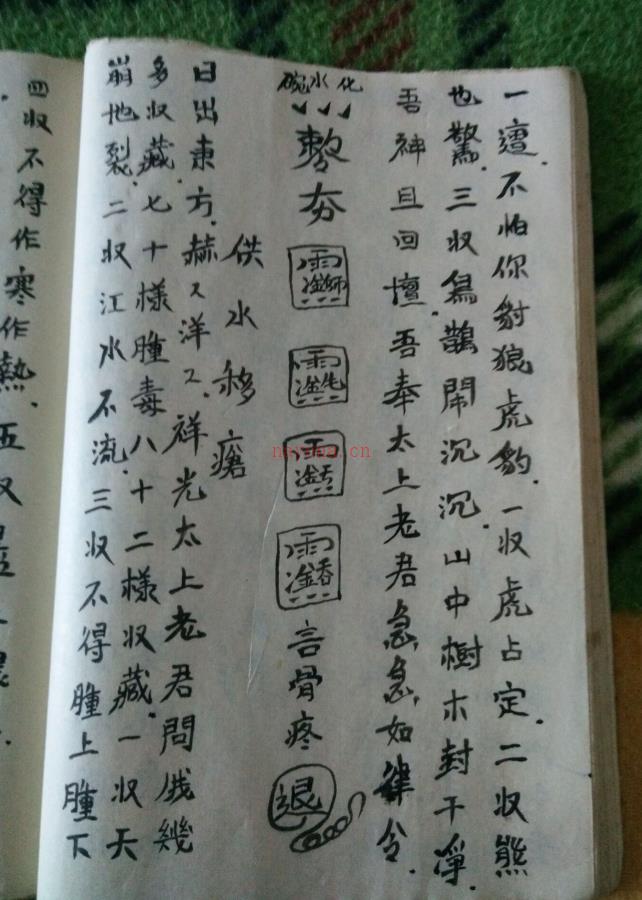 一邅.不怕你豺狼虎豹.一収虎占定.二収熊
也驚.三収鳥鵲鬧沉沉.山中樹木封干淨.
吾神且回壇.吾奉太上老君急急如律令.
碗水化
夯
言骨疼
退
供水移瘡
日出東方.赫〻洋〻.祥光太上老君問俄幾
多収藏.七十樣腫毒八十二樣収藏.一収天
崩地裂.二収江水不流.三収不得腫上腫下
四収不得作寒作熱.五収